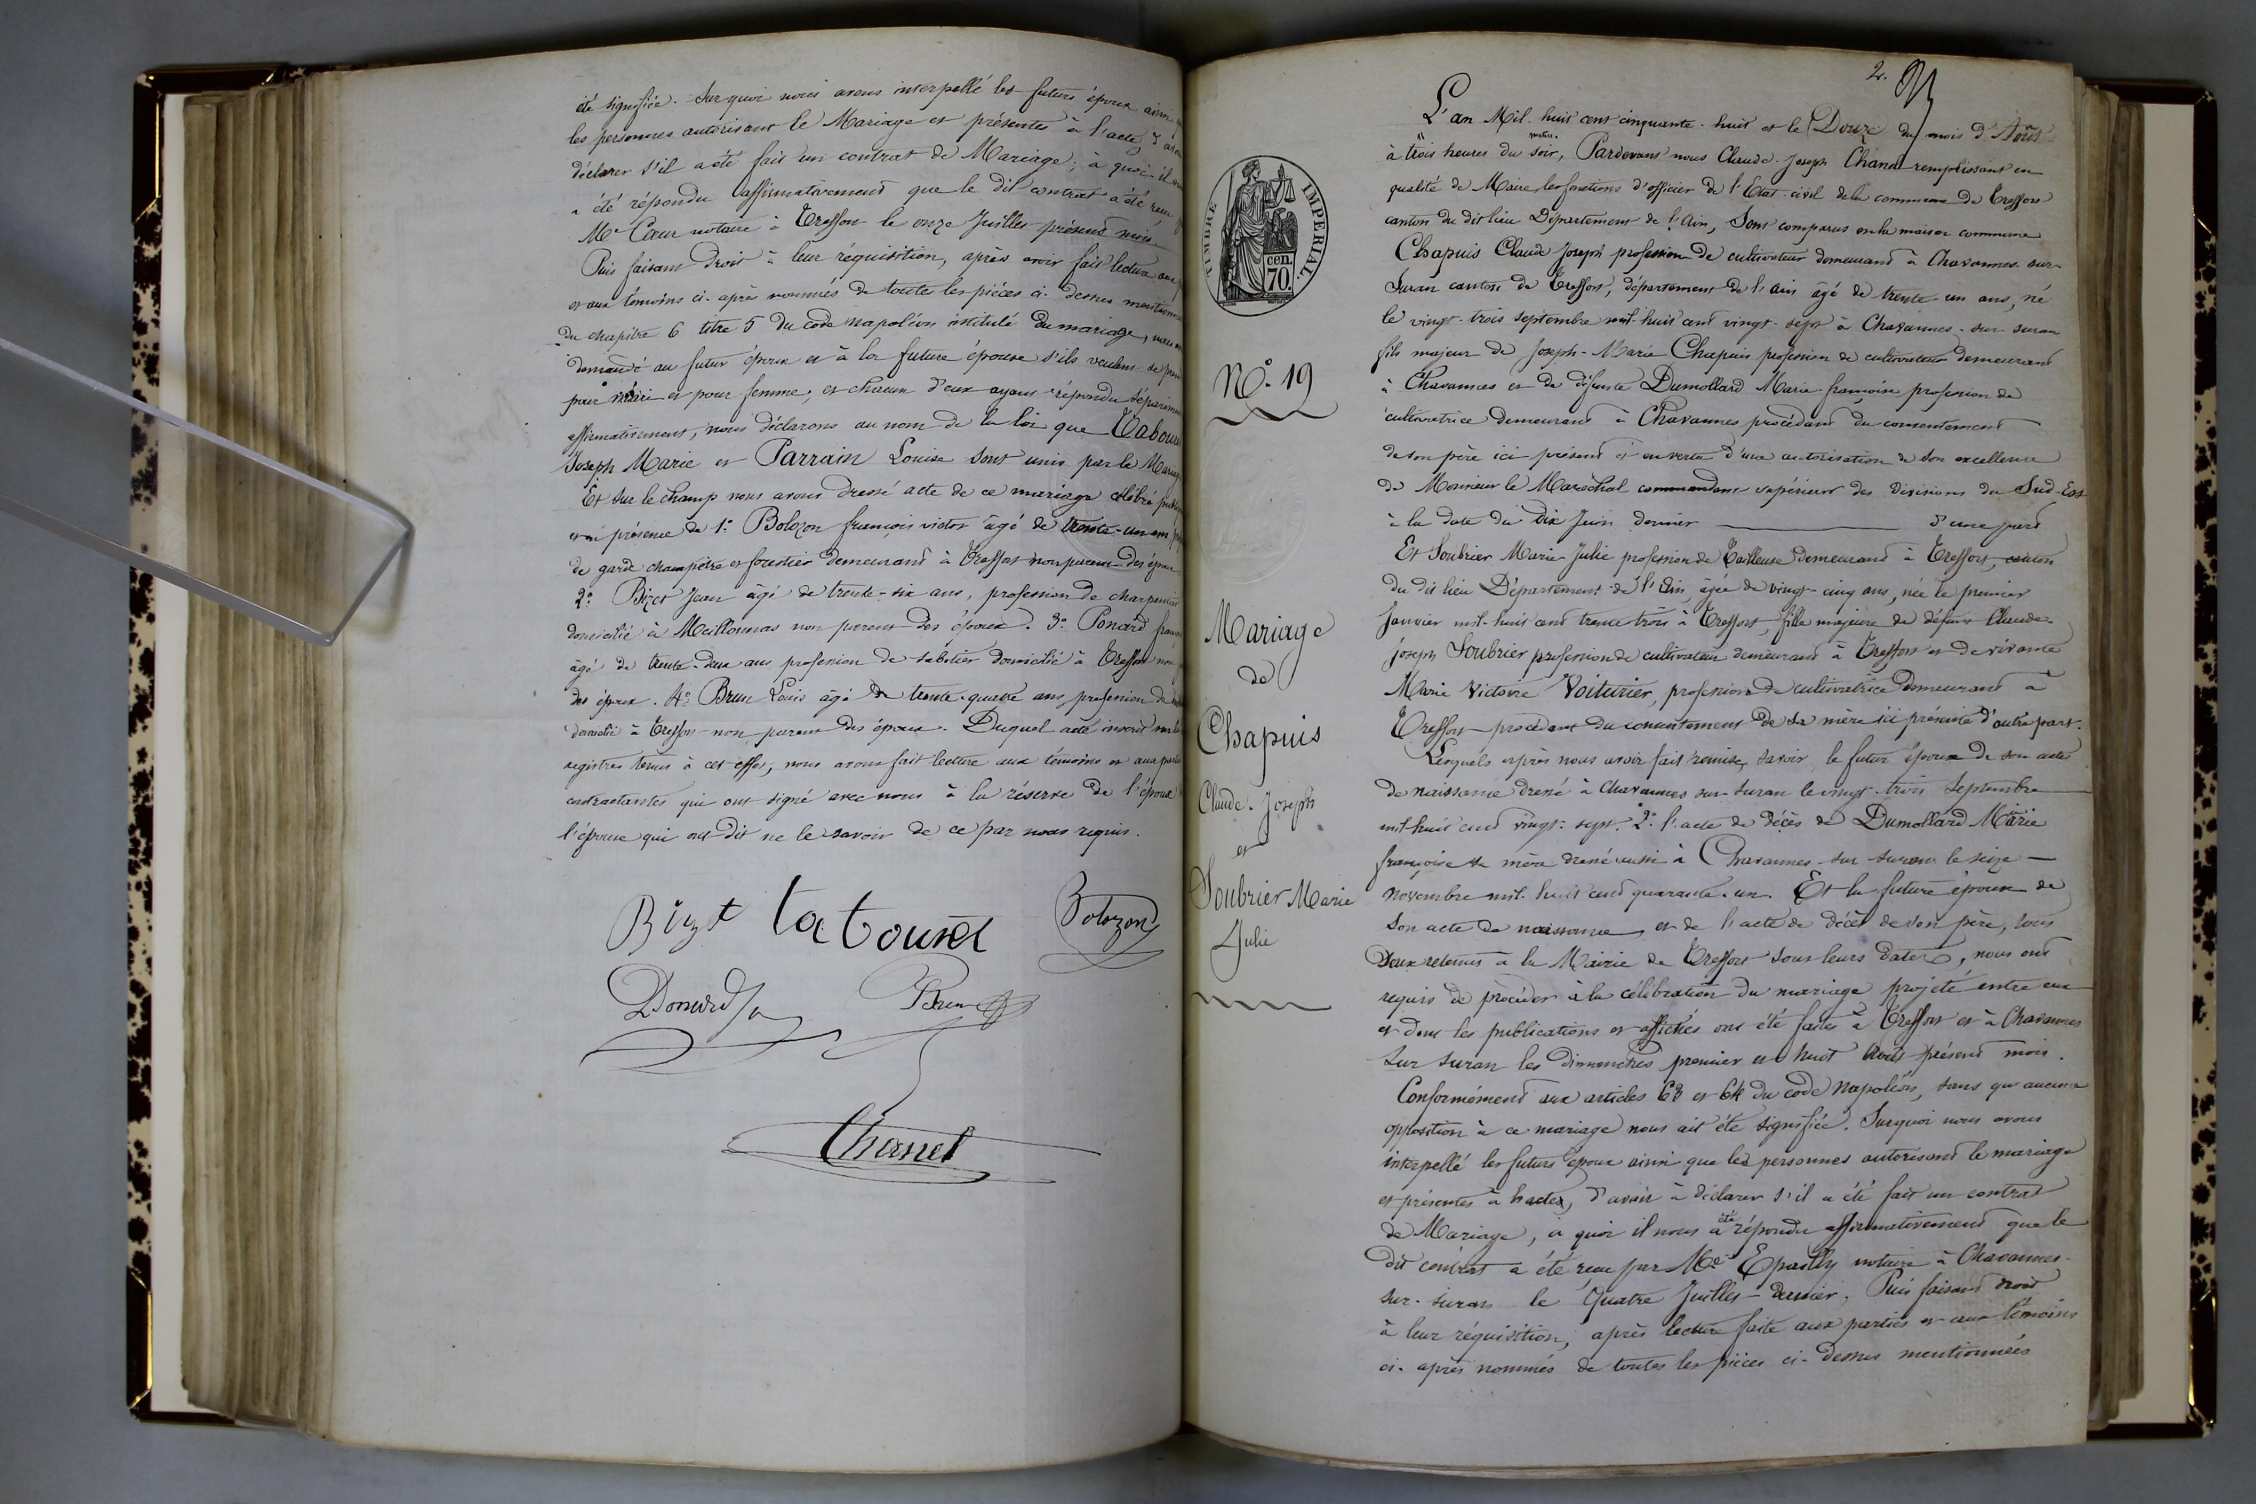 été signifiée. Sur quoi nous avons interpellé les futurs époux ainsi
les personnes autorisant le Mariage et présentes à l'acte, d'avoir
déclarer s'il a été fait un contrat de Mariage; à quoi il
a été répondu affirmativement que le dit contrat a été reçu
Me Cœur notaire à Treffort le onze Juillet présent mois
Puis faisant droit à leur réquisition, après avoir fait lecture aux
et aux témoins ci-après nommés de toutes les pièces ci-dessus
du chapitre 6 titre 5 du code Napoléon intitulé du mariage, nous
demandé au futur époux et à la future épouse s'ils veulent se
pour mari et pour femme; et chacun d'eux ayant répondu
affirmativement, nous déclarons au nom de la loi que
Joseph Marie et Parrain Louise sont unis par le
Et sur le champ nous avons dressé acte de ce mariage célébré
en présence de 1.° Bolozon françois victor âgé de trente-un ans
de garde champêtre et forestier demeurant à Treffort non parent des époux
2.° Bizet Jean âgé de trente-six ans, profession de charpentier
domicilié à Meillonnas non parent des époux. 3.° Ponard
âgé de trente-deux ans profession de sabotier domicilié à Treffort non
des époux. 4.° Brun Louis âgé de trente-quatre ans, profession de
domicilié à Treffort non parent des époux. Duquel acte inscrit
registres tenus à cet effet, nous avons fait lecture aux témoins et aux
contractantes qui ont signé avec nous à la réserve de l'époux
l'épouse qui ont dit ne le savoir de ce par nous requis.
Bizet tabouret Bolozon
Ponard Brun
Chanel
2.
TIMBRE IMPERIAL.
cen. 70.
N.° 19
Mariage
de
Chapuis
Claude-Joseph
et
Soubrier Marie
Julie
L'an Mil-huit cent cinquante-huit et le Douze du mois d'Août
à trois heures du soir, Pardevant nous Claude-Joseph Chanel remplissant en
qualité de Maire les fonctions d'officier de l'Etat-civil de la commune de Treffort
canton du dit lieu Département de l'Ain, Sont comparus en la maison commune
Chapuis Claude Joseph profession de cultivateur demeurant à Chavannes-sur-
Suran canton de Treffort, département de l'Ain âgé de trente-un ans, né
le vingt-trois septembre mil-huit cent vingt-sept à Chavannes-sur-suran
fils majeur de Joseph-Marie Chapuis profession de cultivateur demeurant
à Chavannes et de défunte Dumollard Marie françoise profession de
cultivatrice demeurant à Chavannes procédant du consentement
de son père ici présent et en vertu d'une autorisation de Son excellence
de Monsieur le Maréchal commandant supérieur des divisions du Sud-Est
à la date du Dix Juin dernier d'une part
Et Soubrier Marie-Julie profession de Tailleuse demeurant à Treffort, canton
du dit lieu Département de l'Ain, âgée de vingt-cinq ans, née le premier
Janvier mil-huit cent trente trois à Treffort, fille majeure de défunt Claude-
Joseph Soubrier profession de cultivateur demeurant à Treffort et de vivante
Marie Victoire Voiturier, profession de cultivatrice demeurant à
Treffort procédant du consentement de sa mère ici présente d'autre part.
Lesquels après nous avoir fait remise, savoir le futur époux de son acte
de naissance dressé à Chavannes-sur-Suran le vingt-trois Septembre
mil-huit cent vingt-sept. 2.° l'acte de décès de Dumollard Marie
françoise sa mère dressé aussi à Chavannes-sur-suran le seize
Novembre mil-huit cent quarante-un. Et la future épouse de
son acte de naissance et de l'acte de décès de son père, tous
deux retenus à la Mairie de Treffort sous leurs dates, nous ont
requis de procéder à la célébration du mariage projeté entre eux
et dont les publications et affiches ont été faites à Treffort et à Chavannes
sur suran les dimanches premier et huit Août présent mois.
Conformément aux articles 63 et 64 du code Napoléon, sans qu'aucune
opposition à ce mariage nous ait été signifiée. Surquoi nous avons
interpellé les futurs époux ainsi que les personnes autorisant le mariage
et présentes à l'acte, d'avoir à déclarer s'il a été fait un contrat
de Mariage, à quoi il nous a été répondu affirmativement que le
dit contrat a été reçu par Me Epailly notaire à Chavannes-
sur-suran le Quatre Juillet dernier. Puis faisant droit
à leur réquisition, après lecture faite aux parties et aux témoins
ci-après nommés de toutes les pièces ci-dessus mentionnées